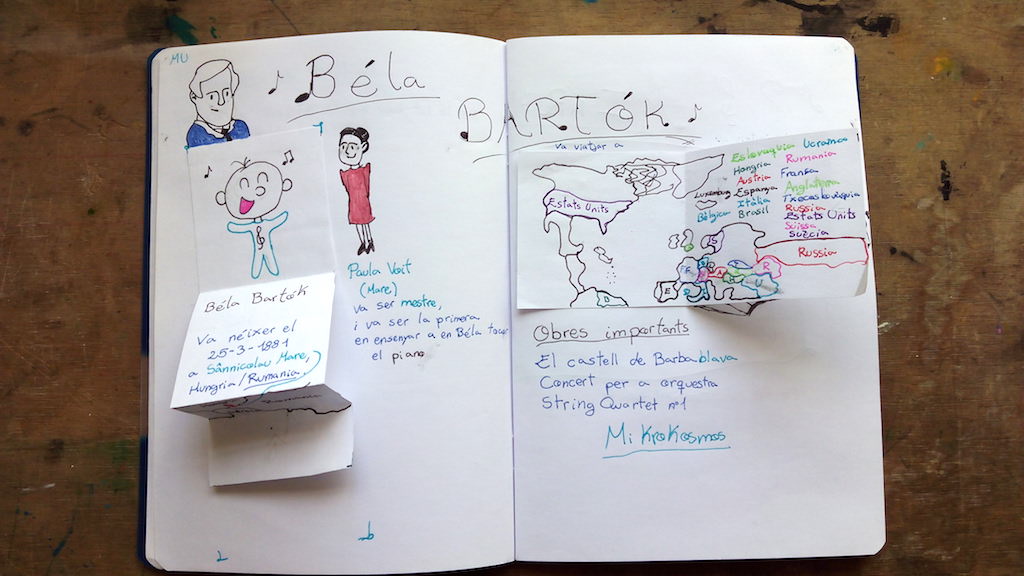 MU
Béla
BARTÓK
Béla Bartók
Va néixer el
25-3-1881
a Sânnicolau Mare,
Hungria/Rumania
Paula Voit
(Mare)
va ser mestre,
i va ser la primera
en ensenyar a en Béla tocar
el piano
va viatjar a
Eslovaquia Ucrania
Hongria Rumania
Austria Fransa
Luxemburg Espanya Anglaterra
Itàlia Txecoslovàquia
Bèlgica Brasil Russia
Estats Units
Suïssa
Suècia
Estats Units
Russia
Obres importants
El castell de Barbablava
Concert per a orquestra
String Quartet nº1
Mikrokosmos